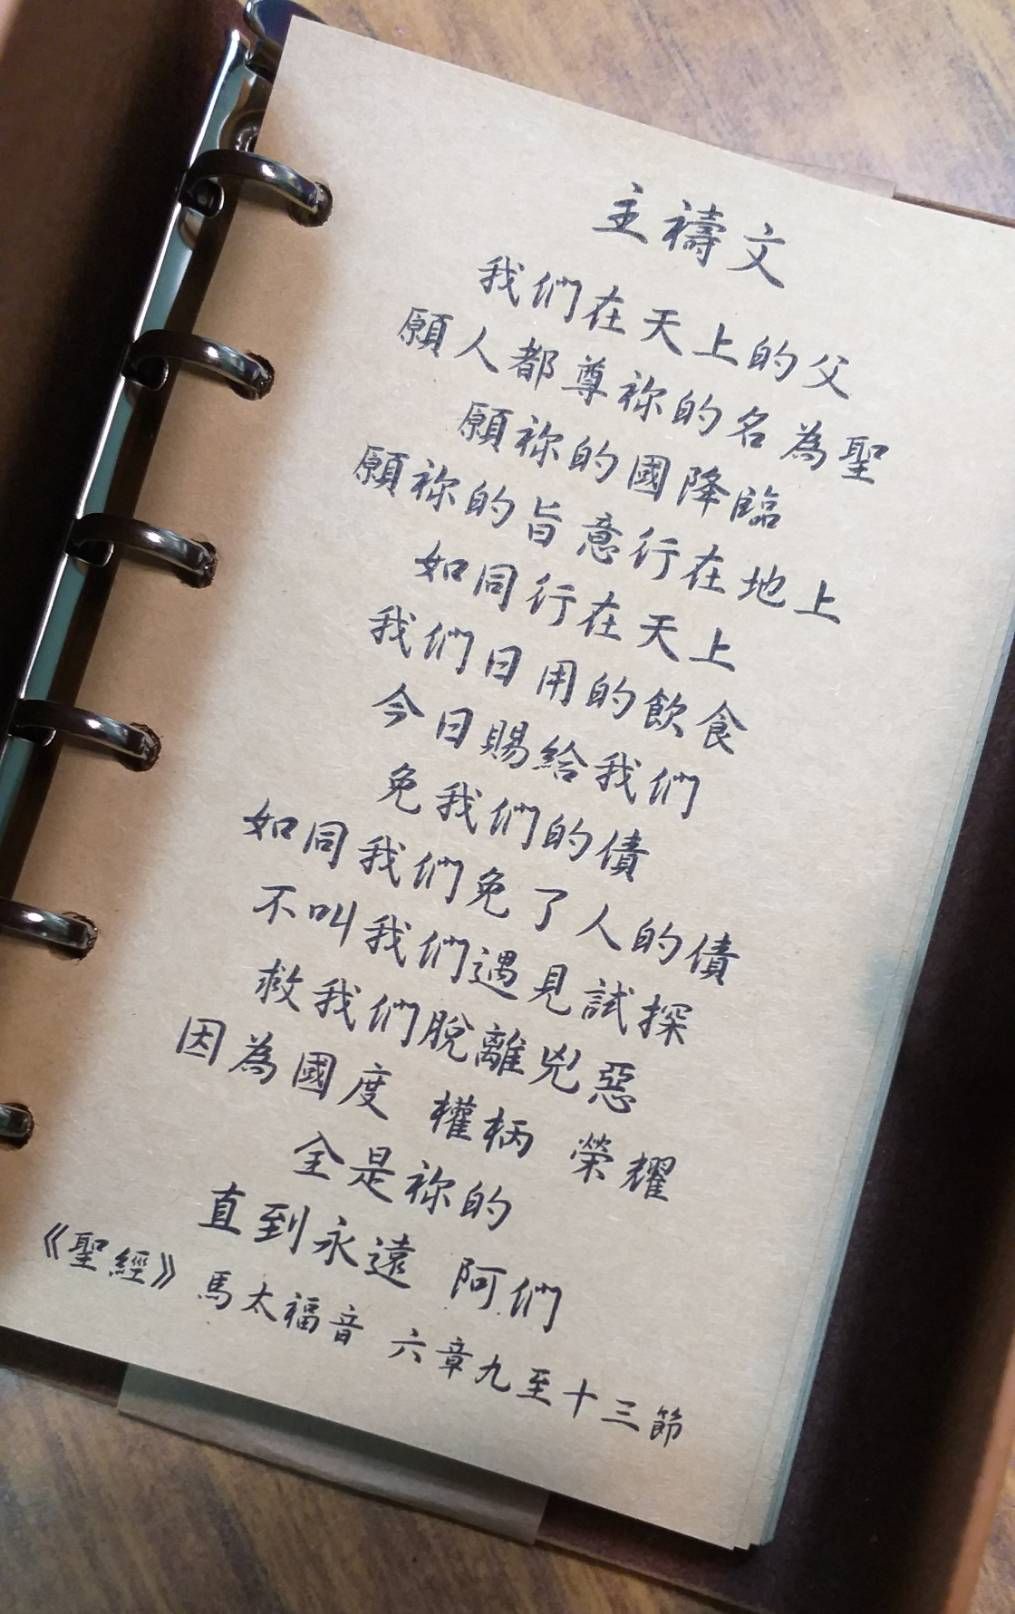 主禱文
我們在天上的父
願人都尊祢的名為聖
願祢的國降臨
願祢的旨意行在地上
如同行在天上
我們日用的飲食
今日賜給我們
免我們的債
如同我們免了人的債
不叫我們遇見試探
救我們脫離兇惡
因為國度 權柄 榮耀
全是祢的
直到永遠 阿們
《聖經》馬太福音 六章九至十三節